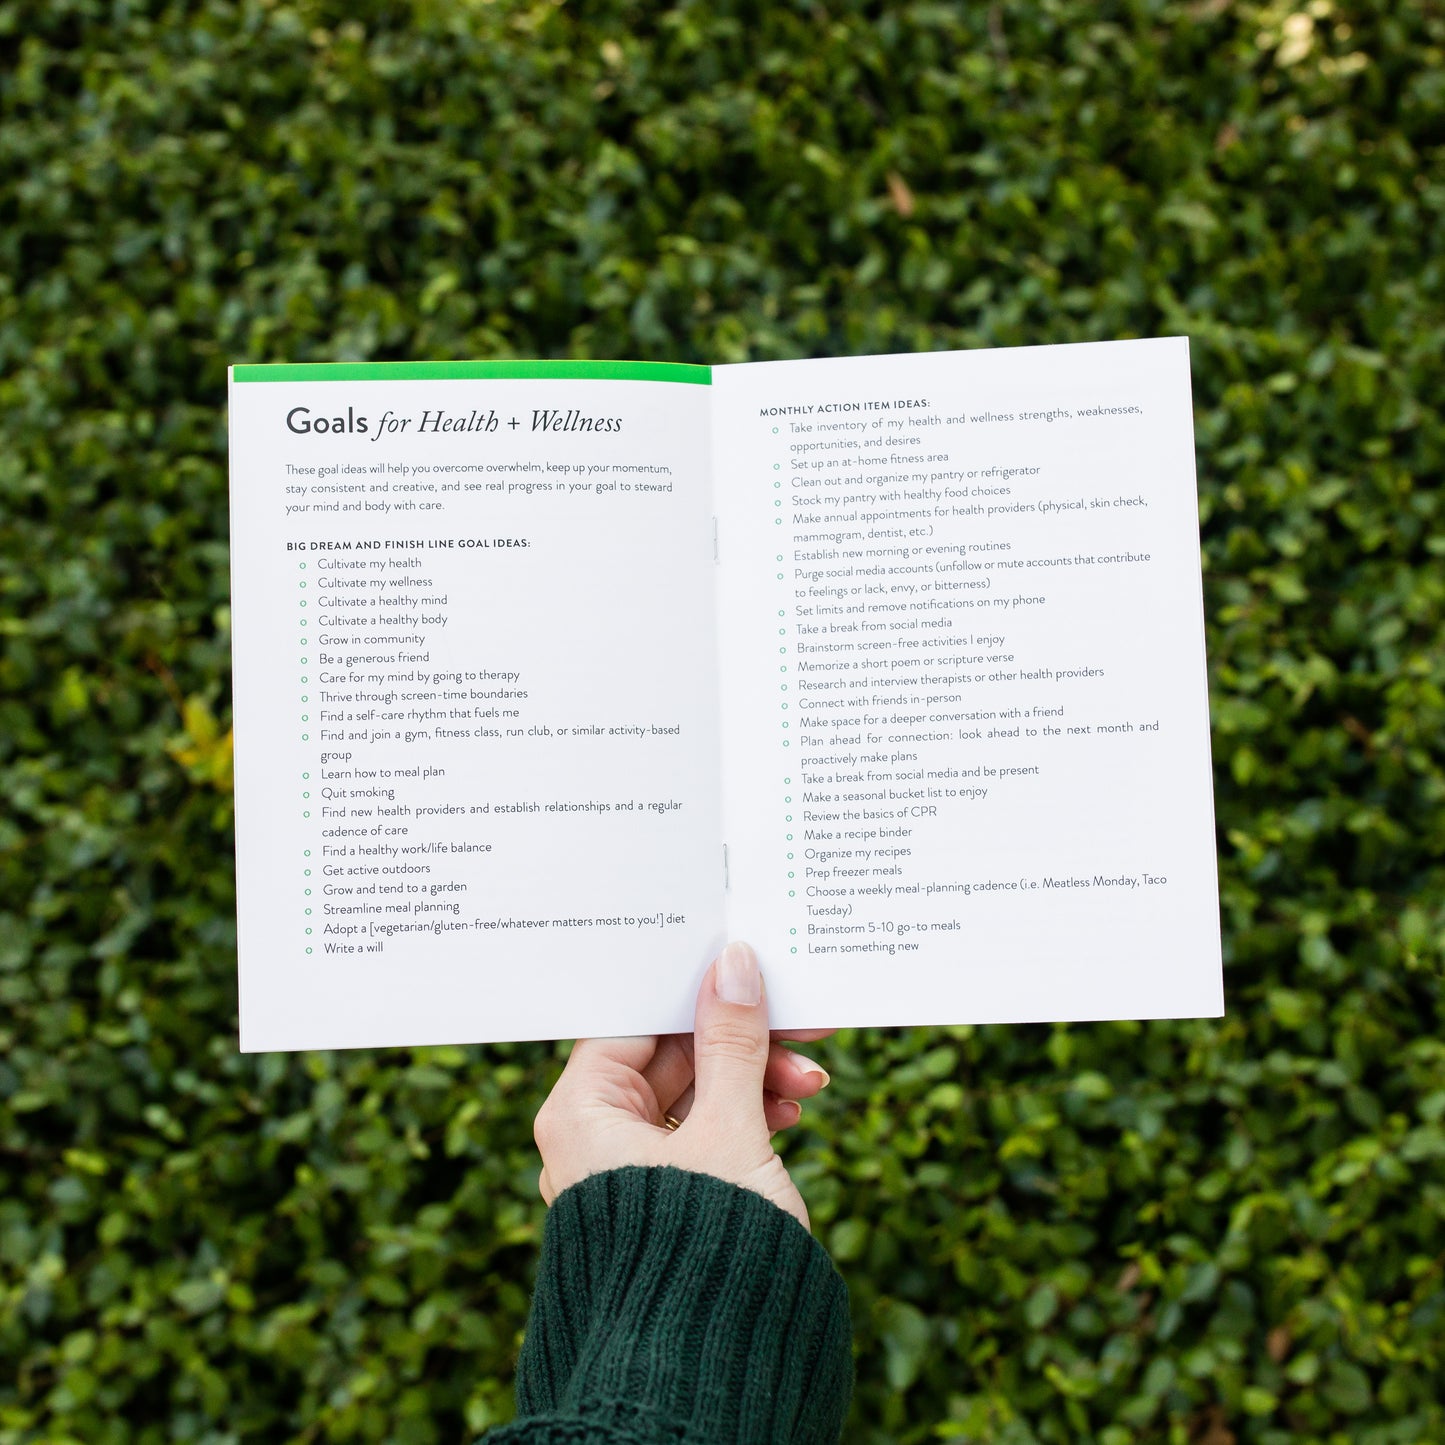 Goals for Health + Wellness
These goal ideas will help you overcome overwhelm, keep up your momentum,
stay consistent and creative, and see real progress in your goal to steward
your mind and body with care.
BIG DREAM AND FINISH LINE GOAL IDEAS:
o Cultivate my health
o Cultivate my wellness
o Cultivate a healthy mind
o Cultivate a healthy body
o Grow in community
o Be a generous friend
o Care for my mind by going to therapy
o Thrive through screen-time boundaries
o Find a self-care rhythm that fuels me
o Find and join a gym, fitness class, run club, or similar activity-based
group
o Learn how to meal plan
o Quit smoking
o Find new health providers and establish relationships and a regular
cadence of care
o Find a healthy work/life balance
o Get active outdoors
o Grow and tend to a garden
o Streamline meal planning
o Adopt a [vegetarian/gluten-free/whatever matters most to you!] diet
o Write a will
MONTHLY ACTION ITEM IDEAS:
o Take inventory of my health and wellness strengths, weaknesses,
opportunities, and desires
o Set up an at-home fitness area
o Clean out and organize my pantry or refrigerator
o Stock my pantry with healthy food choices
o Make annual appointments for health providers (physical, skin check,
mammogram, dentist, etc.)
o Establish new morning or evening routines
o Purge social media accounts (unfollow or mute accounts that contribute
to feelings or lack, envy, or bitterness)
o Set limits and remove notifications on my phone
o Take a break from social media
o Brainstorm screen-free activities I enjoy
o Memorize a short poem or scripture verse
o Research and interview therapists or other health providers
o Connect with friends in-person
o Make space for a deeper conversation with a friend
o Plan ahead for connection: look ahead to the next month and
proactively make plans
o Take a break from social media and be present
o Make a seasonal bucket list to enjoy
o Review the basics of CPR
o Make a recipe binder
o Organize my recipes
o Prep freezer meals
o Choose a weekly meal-planning cadence (i.e. Meatless Monday, Taco
Tuesday)
o Brainstorm 5-10 go-to meals
o Learn something new